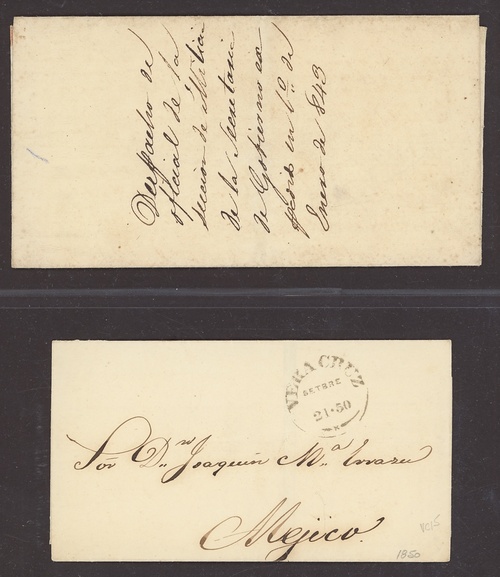 Despacho de
oficial de la
seccion de
de la Secretaria
de Gobierno
en 1º de
Enero de 843
VERACRUZ
SETBRE
21·50
Sor. Dn. Joaquin Ma. Errazu
Mejico.
VC15
1850